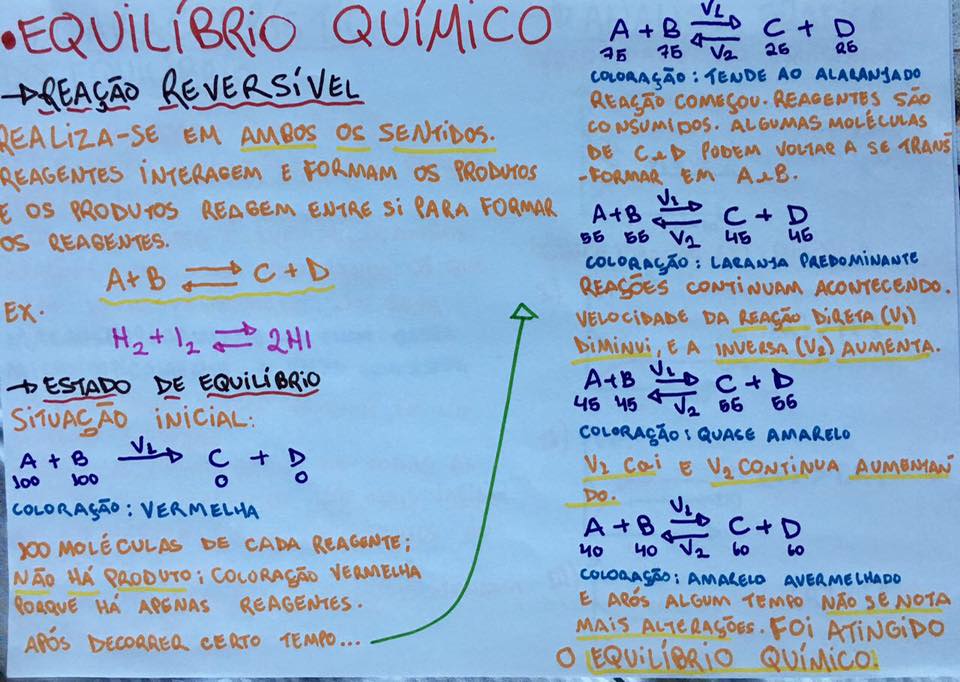 •EQUILÍBRIO QUÍMICO
→REAÇÃO REVERSÍVEL
REALIZA-SE EM AMBOS OS SENTIDOS.
REAGENTES INTERAGEM E FORMAM OS PRODUTOS
E OS PRODUTOS REAGEM ENTRE SI PARA FORMAR
OS REAGENTES.
A+B ⇌ C+D
EX.
H₂ + I₂ ⇌ 2HI
→ESTADO DE EQUILÍBRIO
SITUAÇÃO INICIAL:
V₁
A + B → C + D
100 100 0 0
COLORAÇÃO: VERMELHA
100 MOLÉCULAS DE CADA REAGENTE;
NÃO HÁ PRODUTO; COLORAÇÃO VERMELHA
PORQUE HÁ APENAS REAGENTES.
APÓS DECORRER CERTO TEMPO...
V₁
A + B ⇌ C + D
75 75 V₂ 25 25
COLORAÇÃO: TENDE AO ALARANJADO
REAÇÃO COMEÇOU. REAGENTES SÃO
CONSUMIDOS. ALGUMAS MOLÉCULAS
DE C e D PODEM VOLTAR A SE TRANS
-FORMAR EM A e B.
V₁
A+B ⇌ C + D
55 55 V₂ 45 45
COLORAÇÃO: LARANJA PREDOMINANTE
REAÇÕES CONTINUAM ACONTECENDO.
VELOCIDADE DA REAÇÃO DIRETA (V₁)
DIMINUI, E A INVERSA (V₂) AUMENTA.
V₁
A+B ⇌ C + D
45 45 V₂ 55 55
COLORAÇÃO: QUASE AMARELO
V₁ CAI E V₂ CONTINUA AUMENTAN
DO.
V₁
A + B ⇌ C + D
40 40 V₂ 60 60
COLORAÇÃO: AMARELO AVERMELHADO
E APÓS ALGUM TEMPO NÃO SE NOTA
MAIS ALTERAÇÕES. FOI ATINGIDO
O EQUILÍBRIO QUÍMICO.